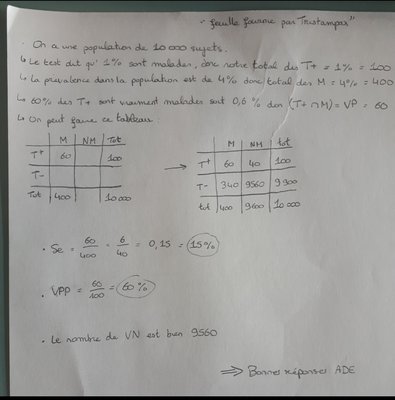 "feuille fournie par Tristampar"
· On a une population de 10 000 sujets.
↳ Le test dit qu' 1% sont malades, donc notre total des T+ = 1% = 100
↳ La prévalence dans la population est de 4% donc total des M = 4% = 400
↳ 60% des T+ sont vraiment malades soit 0,6 % donc (T+ ∩ M) = VP = 60
↳ On peut faire ce tableau:
M NM Tot
T+ 60 100
T-
Tot 400 10 000
→
M NM tot
T+ 60 40 100
T- 340 9560 9900
tot 400 9600 10 000
· Se = 60/400 = 6/40 = 0,15 = 15%
· VPP = 60/100 = 60 %
· Le nombre de VN est bien 9560
⇒ Bonnes réponses ADE